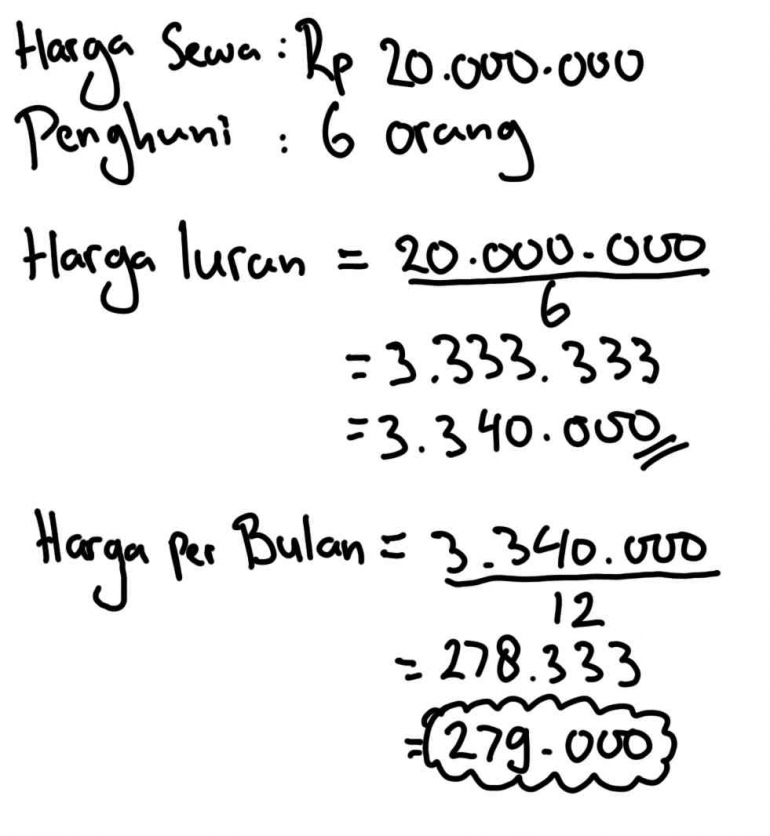 Harga Sewa : Rp 20.000.000
Penghuni : 6 orang
Harga Iuran = 20.000.000
6
= 3.333.333
= 3.340.000
Harga per Bulan = 3.340.000
12
= 278.333
= 279.000